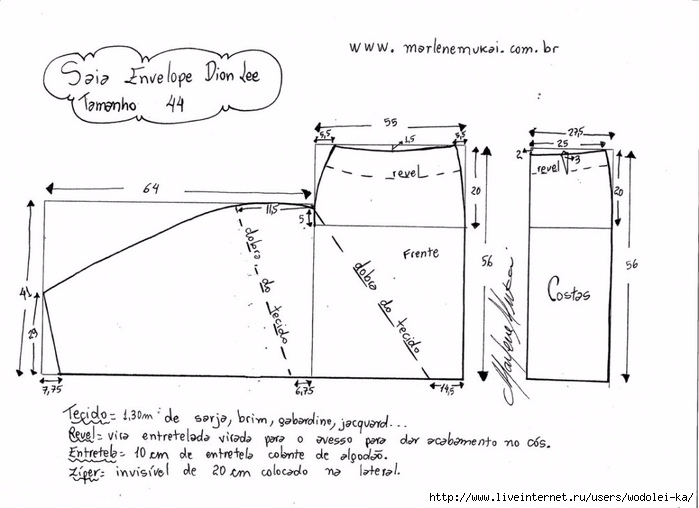 www. marlenemukai.com.br
Saia Envelope Dion Lee
Tamanho 44
55
5,5
1,5
5,5
revel
20
64
11,5
5
41
29
7,75
6,75
14,5
dobra do tecido
dobra do tecido
Frente
56
27,5
25
2
3
revel
20
56
Costas
Marlene Mukai
Tecido= 1,30m de sarja, brim, gabardine, jacquard...
Revel= vira entretelada virada para o avesso para dar acabamento no cós.
Entretela= 10 cm de entretela colante de algodão.
Zíper= invisível de 20 cm colocado na lateral.
http://www.liveinternet.ru/users/wodolei-ka/